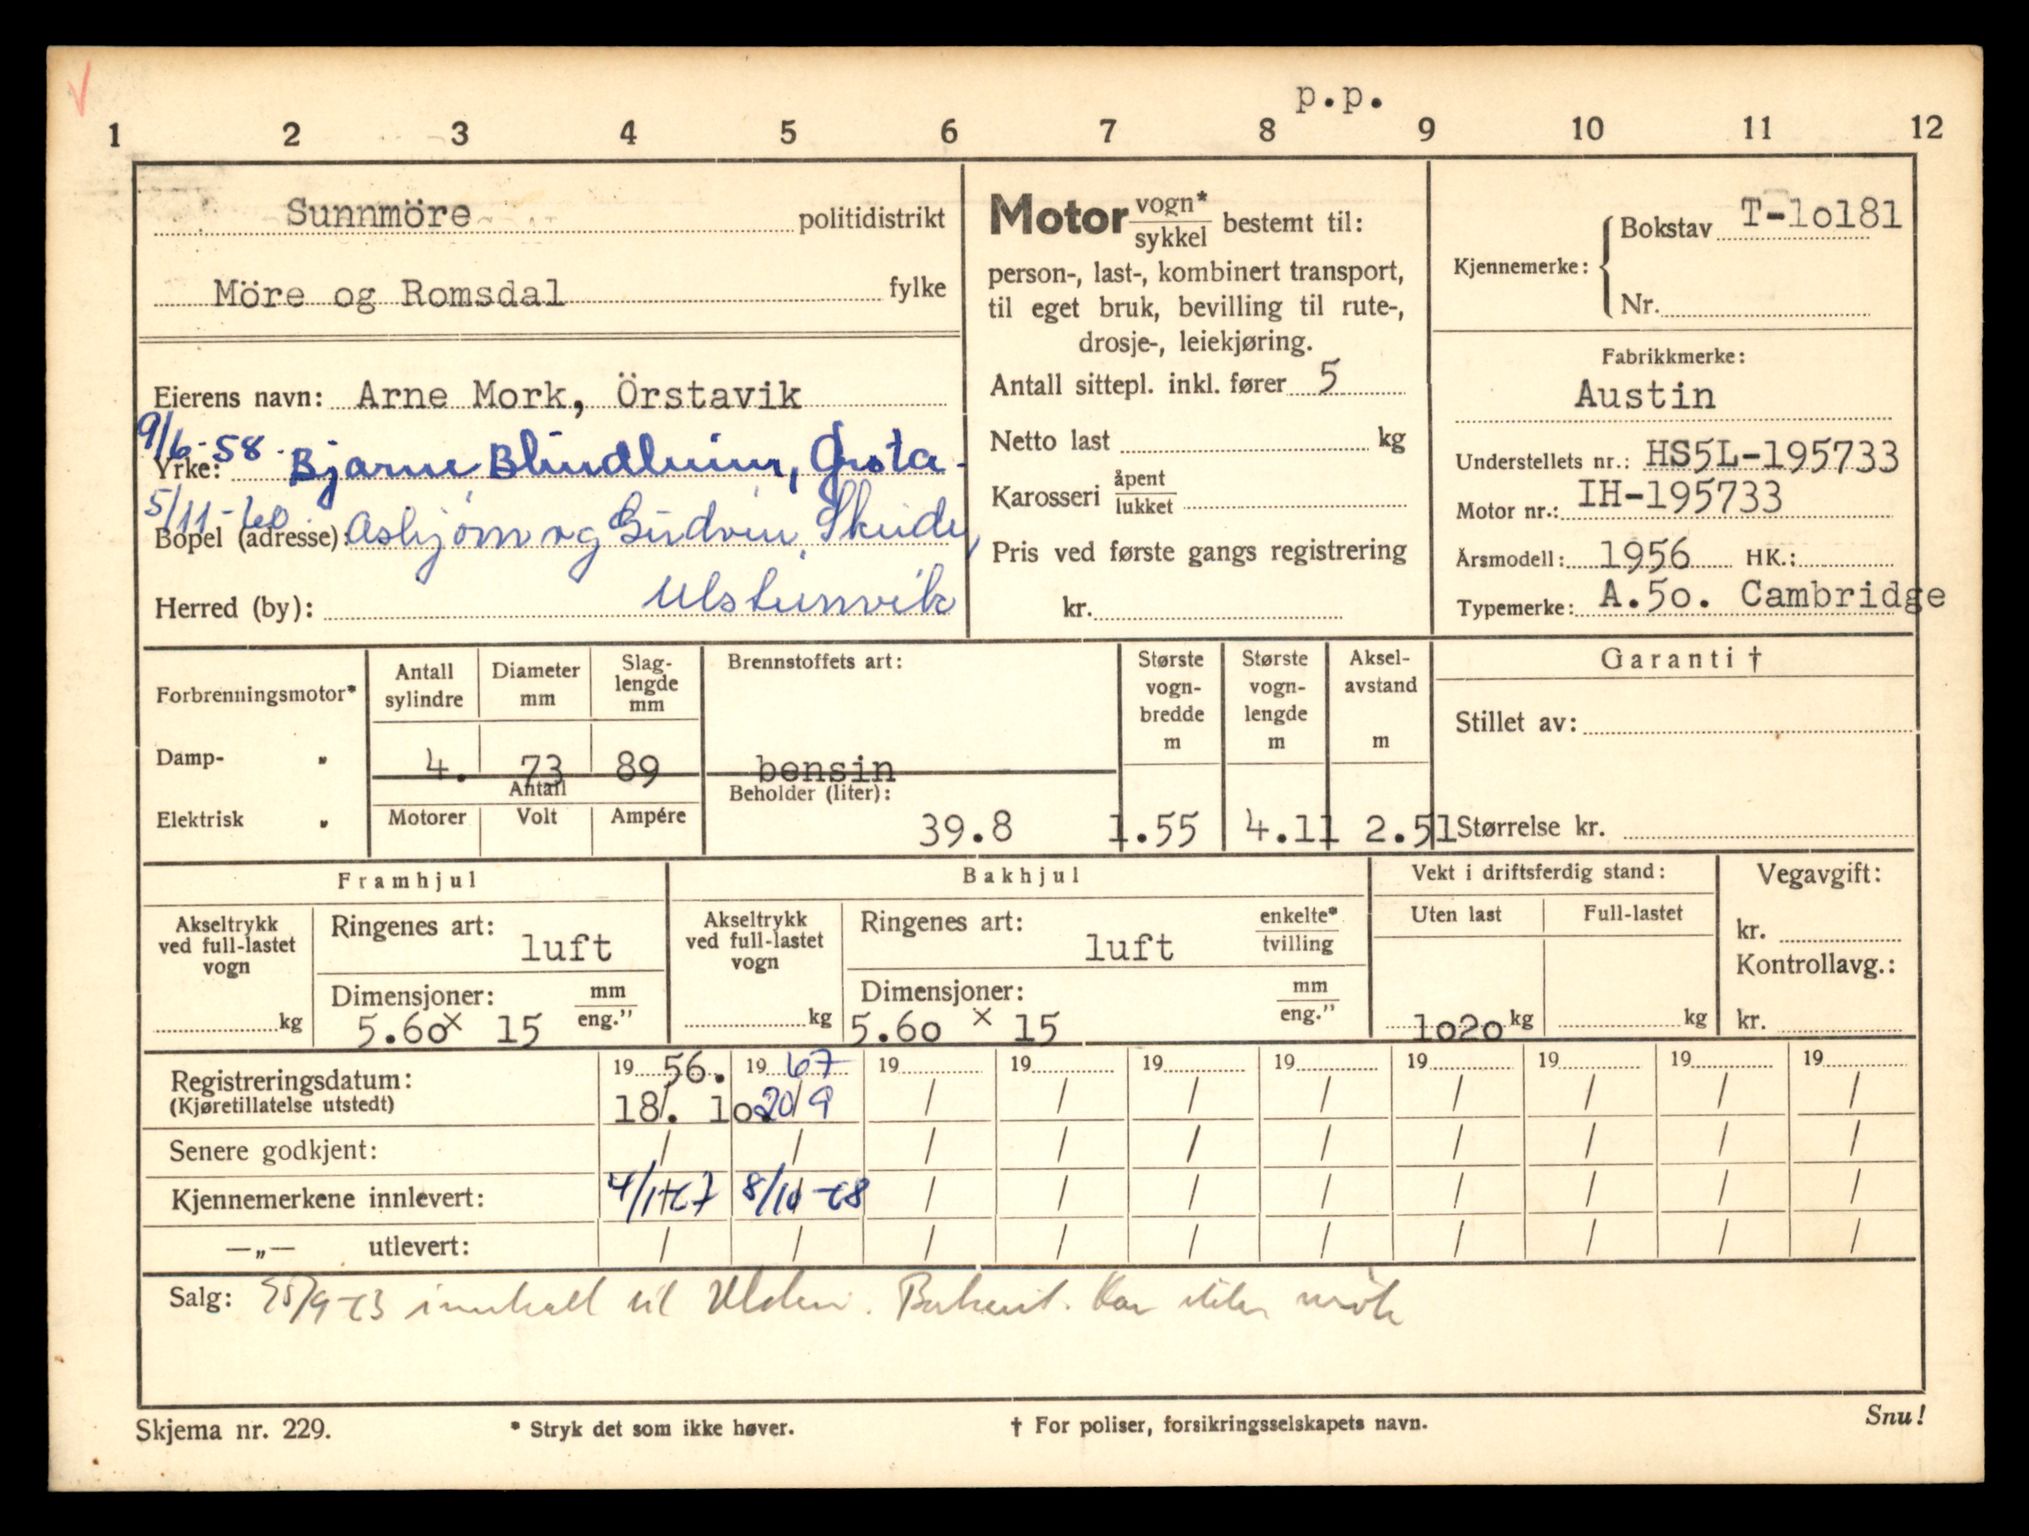 p.p.
1 2 3 4 5 6 7 8 9 10 11 12
Sunnmöre politidistrikt
Möre og Romsdal fylke
Eierens navn: Arne Mork, Örstavik
9/6-58. Bjarne Blindheim, Ørsta
Yrke:
5/11-60. Asbjørn og Gudrun
Bopel (adresse):
Ulsteinvik
Herred (by):
Motor vogn*/sykkel bestemt til:
person-, last-, kombinert transport,
til eget bruk, bevilling til rute-,
drosje-, leiekjøring.
Antall sittepl. inkl. fører 5
Netto last kg
Karosseri åpent/lukket
Pris ved første gangs registrering
kr.
Kjennemerke: Bokstav T-10181
Nr.
Fabrikkmerke:
Austin
Understellets nr.: HS5L-195733
Motor nr.: IH-195733
Årsmodell: 1956 HK.:
Typemerke: A.50. Cambridge
Forbrenningsmotor*
Damp- "
Elektrisk "
Antall sylindre
Diameter mm
Slag-lengde mm
4. 73 89
Antall
Motorer Volt Ampére
Brennstoffets art:
bensin
Beholder (liter):
39.8
Største vogn-bredde m
1.55
Største vogn-lengde m
4.11
Aksel-avstand m
2.51
Garanti †
Stillet av:
Størrelse kr.
Framhjul
Akseltrykk ved full-lastet vogn
kg
Ringenes art:
luft
Dimensjoner: mm/eng."
5.60 x 15
Bakhjul
Akseltrykk ved full-lastet vogn
kg
Ringenes art: enkelte*/tvilling
luft
Dimensjoner: mm/eng."
5.60 x 15
Vekt i driftsferdig stand:
Uten last Full-lastet
1020 kg kg
Vegavgift:
kr.
Kontrollavg.:
kr.
Registreringsdatum: 19 56. 19 67 19 19 19 19 19 19 19 19
(Kjøretillatelse utstedt) 18/. 10. 20/9 / / / / / / / /
Senere godkjent: / / / / / / / / / /
Kjennemerkene innlevert: 4/1-67 8/10-68 / / / / / / / /
—„— utlevert: / / / / / / / / / /
Salg: 25/9-63 til
Skjema nr. 229. * Stryk det som ikke høver. † For poliser, forsikringsselskapets navn. Snu!